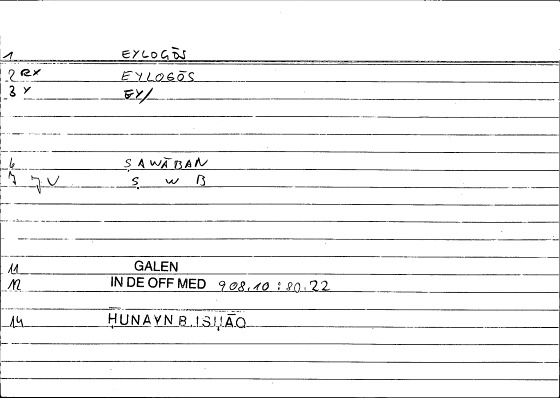 1 EYLOGŌS
2 RX EYLOGŌS
3 Y EY/
6 ṢAWĀBAN
7 JV Ṣ W B
11 GALEN
12 IN DE OFF MED 908,10 : 80.22
14 ḤUNAYN B.ISḤĀQ